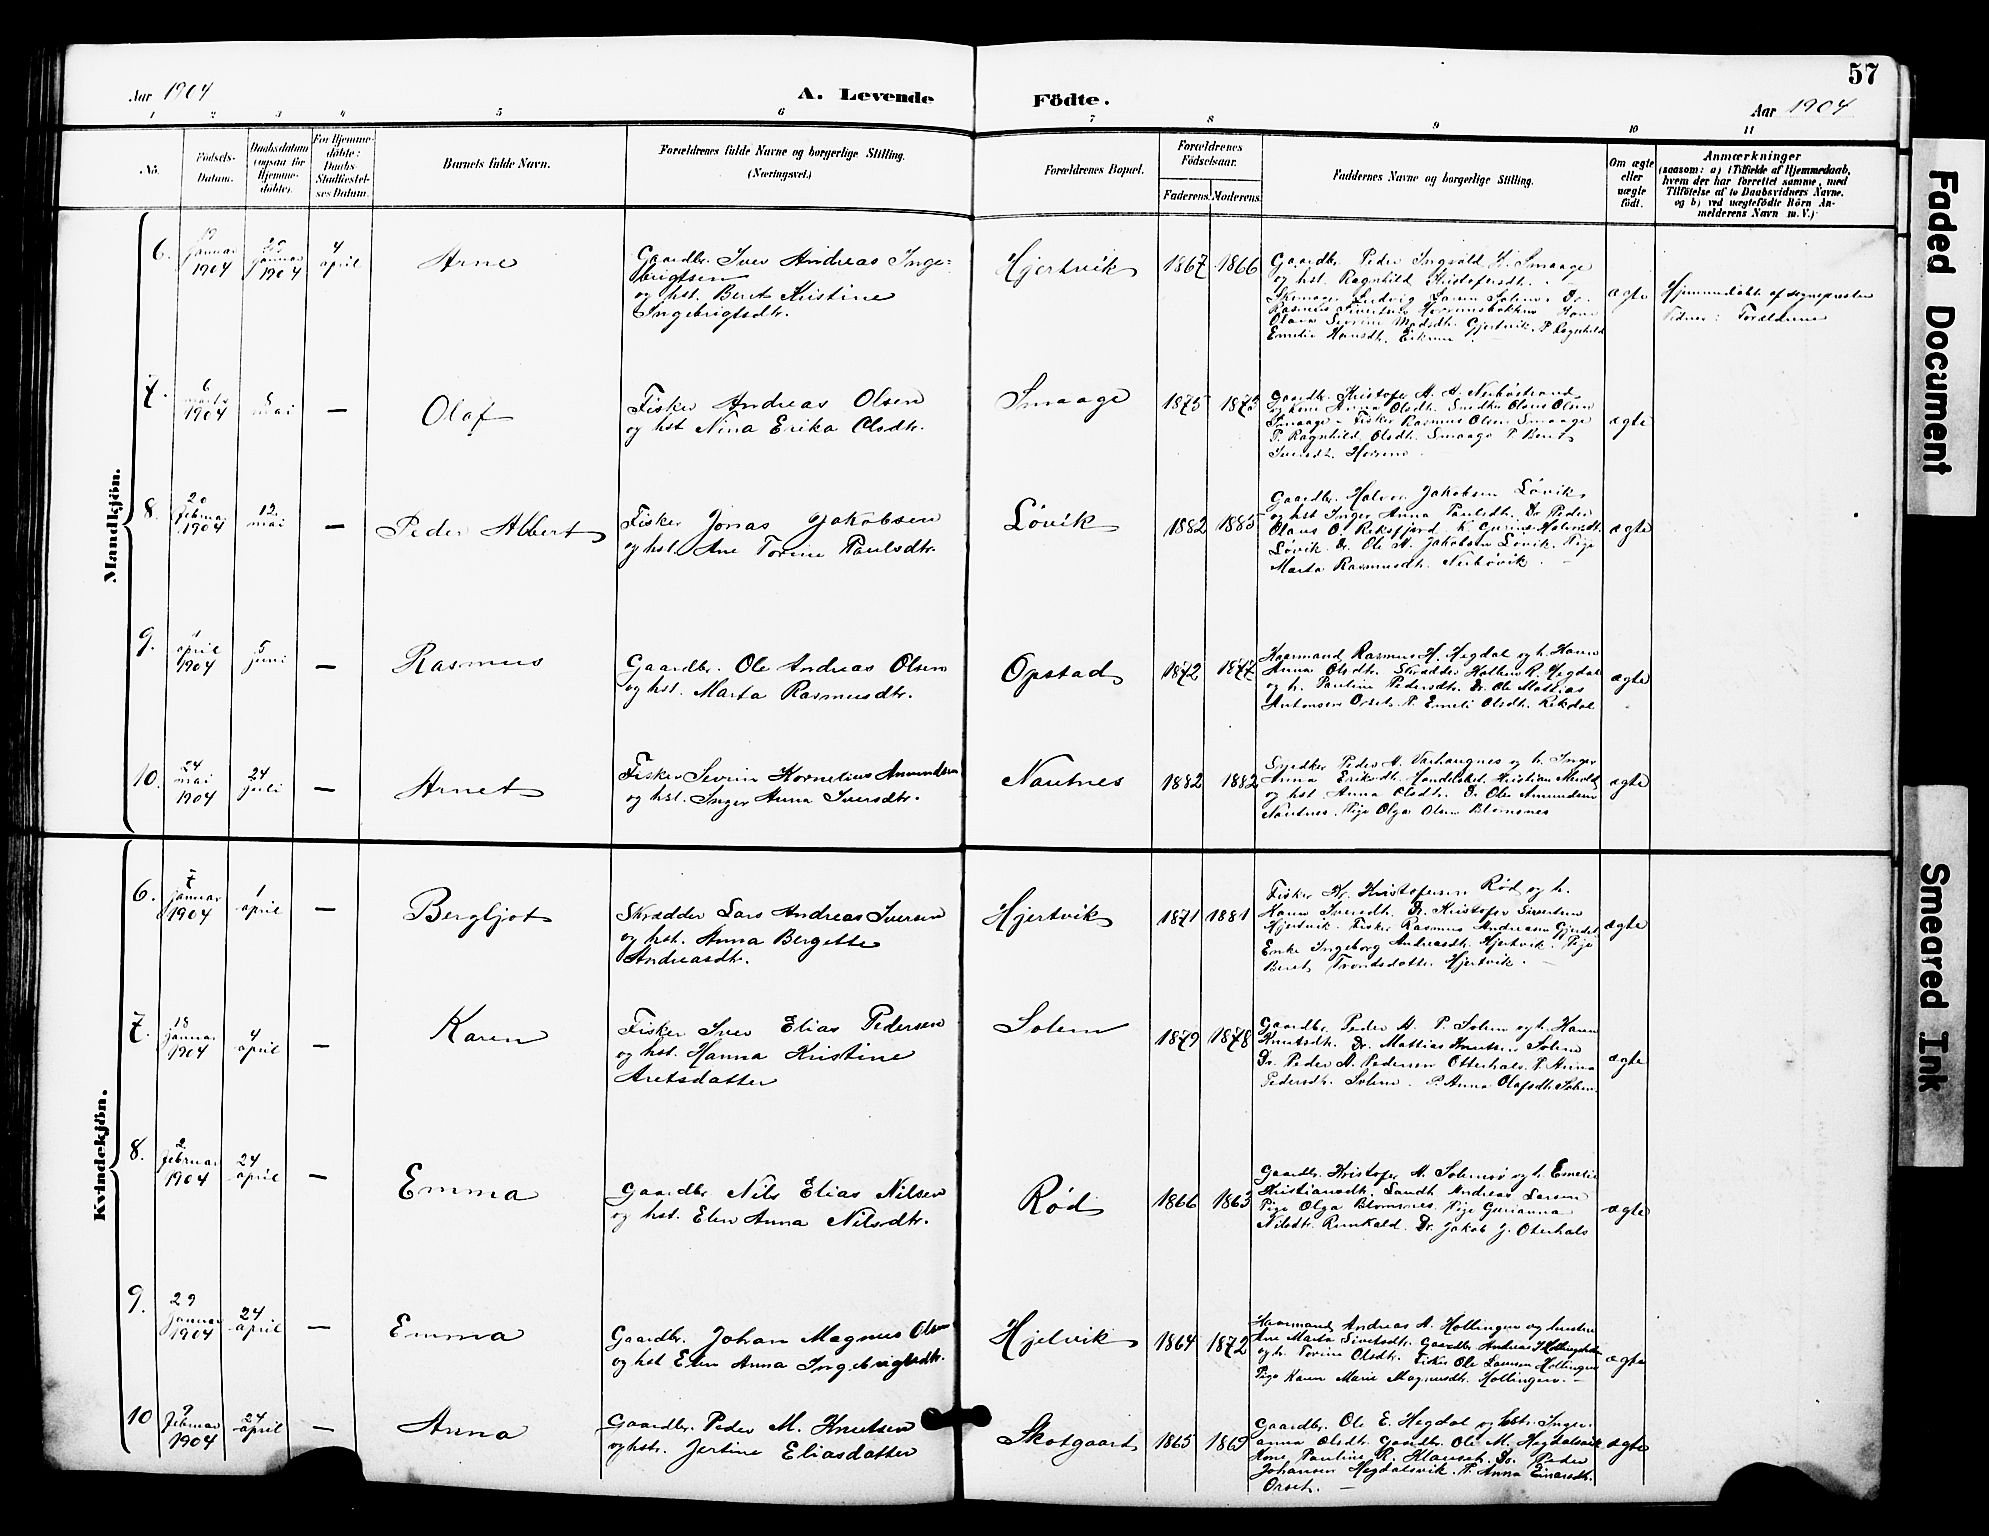 57
Aar 1904
A. Levende Födte.
Aar 1904
1 2 3 4 5 6 7 8 9 10 11
No.
Födsels-
Datum.
Daabsdatum
(ogsaa for
Hjemme-
döbte).
For Hjemme-
döbte:
Daabs
Stadfæstel-
ses Datum.
Barnets fulde Navn.
Forældrenes fulde Navne og borgerlige Stilling.
(Næringsvei.)
Forældrenes Bopæl.
Forældrenes
Födselsaar.
Faderens. Moderens.
Faddernes Navne og borgerlige Stilling.
Om ægte
eller
uægte
födt.
Anmærkninger
(saasom: a) i Tilfælde af Hjemmedaab,
hvem der har forrettet samme, med
Tilföielse af to Daabsvidners Navne,
og b) ved uægtefödte Börn An-
melderens Navn m. V.)
Mandkjön.
6.
januar
1904
januar
1904
4
april
Arne
Gaardbr. Iver Andreas Inge-
brigtsen
og hst. Berit Kristine
Ingebrigtsdtr.
Hjertvik
1867 1866
Gaardbr. Peder Ingvald H. Smaage
og hst. Ragnhild Kristofersdt.
ægte
Hjemmedøbt af sognepresten
Vidner: Forældrene
7.
6
marts
1904
8
mai
—
Olaf
Fisker Andreas Olsen
og hst Nina Erika Olsdtr.
Smaage
1875 1875
Smaage - Fisker Rasmus Olsen Smaage
P. Ragnhild Olsdt. Smaage P. Berit
ægte
8.
20
Februar
1904
12
mai
—
Peder Albert
Fisker Jonas Jakobsen
og hst. Ane Torine Paulsdtr.
Løvik
1882 1885
Gaardbr. Halvor Jakobsen Løvik
og hst Inger Anna Paulsdt. Dr. Peder
Løvik. Dr. Ole A. Jakobsen Løvik. Pige
Marta Rasmusdt. Nerbøvik.
ægte
9.
1
april
1904
5
juni
—
Rasmus
Gaardbr. Ole Andreas Olsen
og hst. Marta Rasmusdtr.
Opstad
1872 1877
Kaarmand Rasmus H. Hegdal og h.
Anna Olsdt. Skrædder R. Hegdal
og h. Pauline Pedersdt. Dr. Ole Mattias
Antonsen Orset. P. Emeli Olsdt. Rekdal
ægte
10.
24
mai
1904
24
juli
—
Arnet
Fisker Severin Kornelius Amundsen
og hst. Inger Anna Iversdtr.
Nautnes
1882 1882
Snedker Peder A. Varhaugnes og h. Inger
Anna Eriksdt. Handelsbet. Kristian
og hst. Anna Olsdt. Dr. Ole Amundsen
Nautnes. Pige Olga Olsen Blomsnes
ægte
Kvindekjön.
6.
7
januar
1904
1
april
—
Bergljot
Skrædder Lars Andreas Iversen
og hst. Anna Bergette
Andreasdtr.
Hjertvik
1871 1881
Fisker Kr. Kristofersen Rød og h.
Iversdt. Dr. Kristofer Sivertsen
Hjertvik. Fisker Rasmus Andreasen Gjerdet
Enke Ingeborg Andreasdt. Hjertvik. Pige
Berit Trondsdatter Hjertvik. —
ægte
7.
18
januar
1904
4
april
—
Karen
Fisker Iver Elias Pedersen
og hst. Hanna Kristine
Aretsdatter
Solem
1879 1878
Gaardbr. Peder A. P. Solem og h. Karen
Knutsdt. Dr. Mattias Knutsen Solem
Dr. Peder A. Pedersen Otterhals. P. Anna
Pedersdt. Solem. P. Anna Olafsdt. Solem.
ægte
8.
2
februar
1904
24
april
—
Emma
Gaardbr Nils Elias Nilsen
og hst. Elen Anna Nilsdtr.
Rød
1866 1863
Gaardbr. Kristofer A. og h. Emelie
Kristiansdt. Andreas Larsen
Pige Olga Blomsnes. Pige Gurianna
Nilsdt. Dr. Jakob J. Oterhals
ægte
9.
29
januar
1904
24
april
—
Emma
Gaardbr. Johan Magnus Olsen
og hst Elen Anna Ingebrigtsdtr.
Hjelvik
1864 1872
Kaarmand Andreas A. Hollingen og hustru
Ane Marta Sivertsdt. Gaardbr Andreas
og h. Torine Olsdt. Fisker Ole Hollingen
Pige Karen Marie Magnusdt. Hollingen. —
ægte
10
9
Februar
1904
24
april
—
Anna
Gaardbr. Peder M. Knutsen
og hstr. Jertine Eliasdatter
Skotgaard
1865 1869
Gaardbr. Ole E. Hegdal og hstr. Inger-
anna Olsdt. Gaardbr. Ole M. Hegdalsvik
Kone Pauline K. Dr. Peder
Johansen Hegdalsvik. P. Anna Einarsdt.
Orset. —
ægte
Faded Document
Smeared Ink